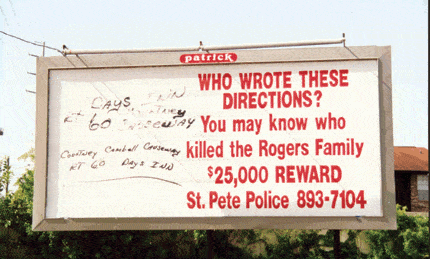 patrick
WHO WROTE THESE
DIRECTIONS?
You may know who
killed the Rogers Family
$25,000 REWARD
St. Pete Police 893-7104
RT 60
Courtney Causeway
RT 60 Days